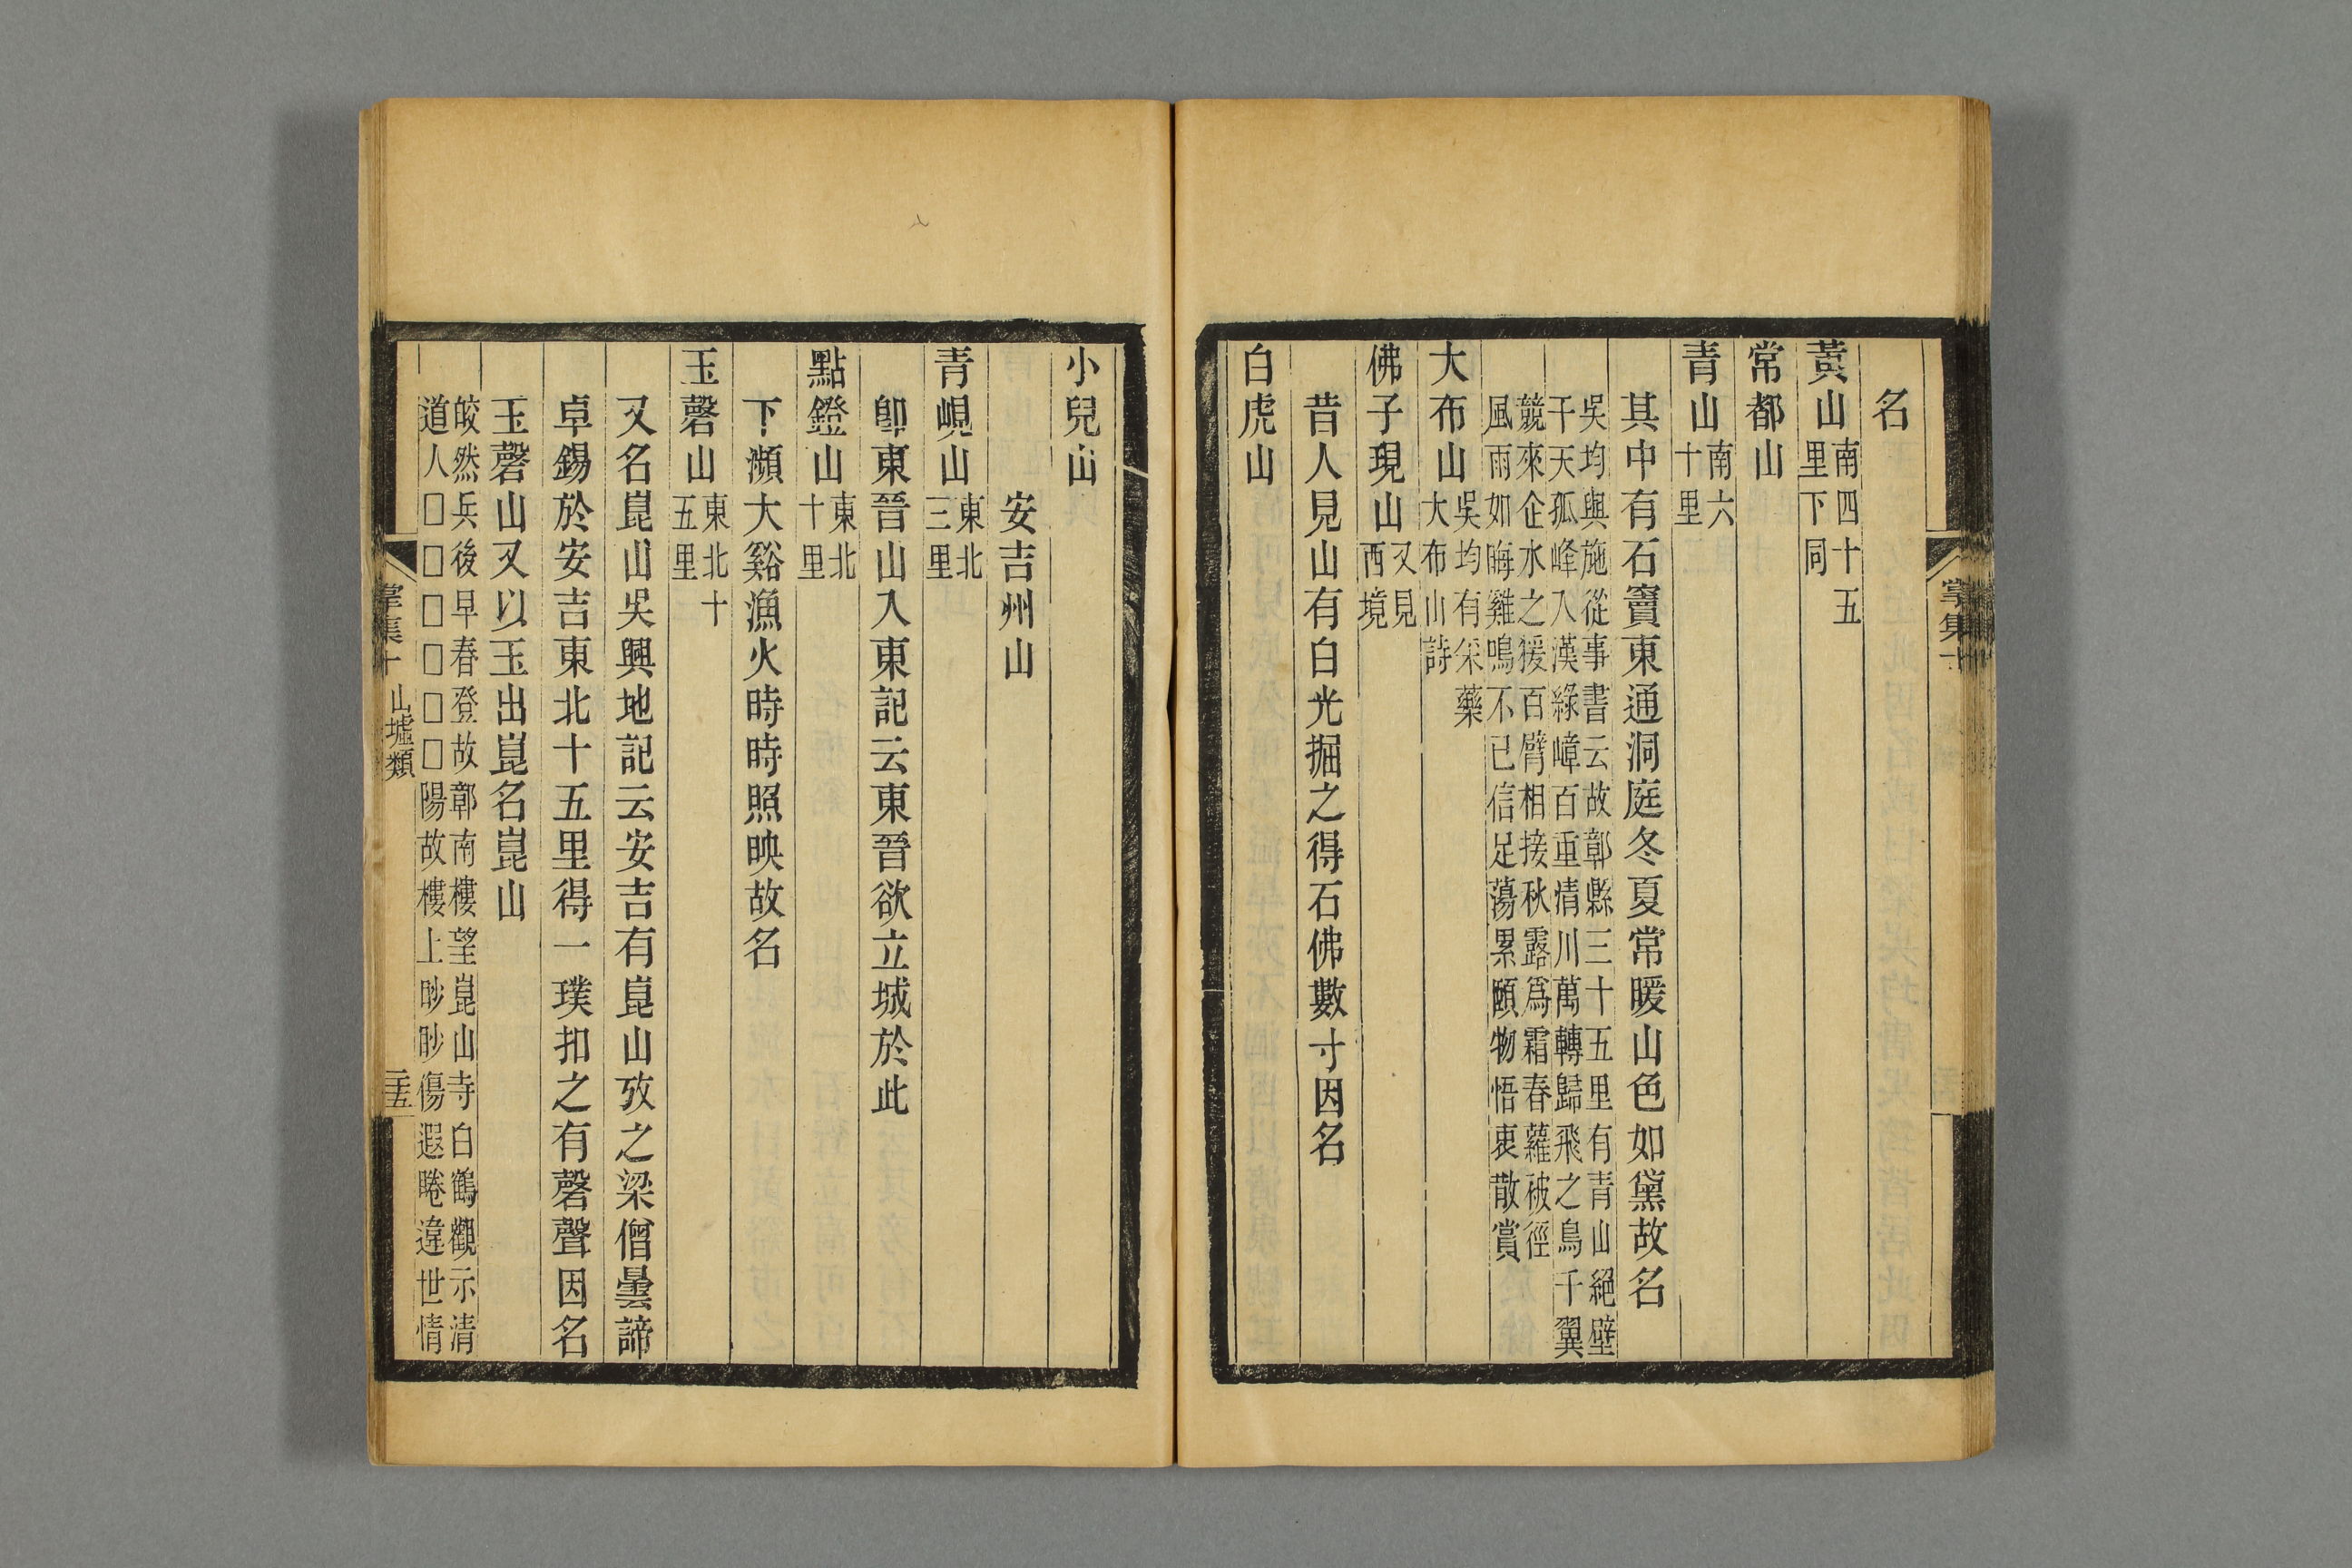 名
黃山南四十五
里下同
常都山
青山南六
十里
其中有石竇東通洞庭冬夏常暖山色如黛故名
吳均與施從事書云故鄣縣三十五里有青山絕壁
干天孤峰入漢綠嶂百重清川萬轉歸飛之鳥千翼
競來企水之猨百臂相接秋露爲霜春蘿被徑
風雨如晦雞鳴不已信足蕩累頤物悟衷散賞
大布山吳均有采藥
大布山詩
佛子現山又見
西境
昔人見山有白光掘之得石佛數寸因名
白虎山
掌集十
小兒山
安吉州山
青峴山東北
三里
卽東晉山入東記云東晉欲立城於此
點鐙山東北
十里
下瀕大谿漁火時時照映故名
玉磬山東北十
五里
又名崑山吳興地記云安吉有崑山攷之梁僧曇諦
卓錫於安吉東北十五里得一璞扣之有磬聲因名
玉磬山又以玉出崑名崑山
皎然兵後早春登故鄣南樓望崑山寺白鶴觀示清
道人□□□□□□陽故樓上眇眇傷遐睠違世情
掌集十 山墟類 二十五